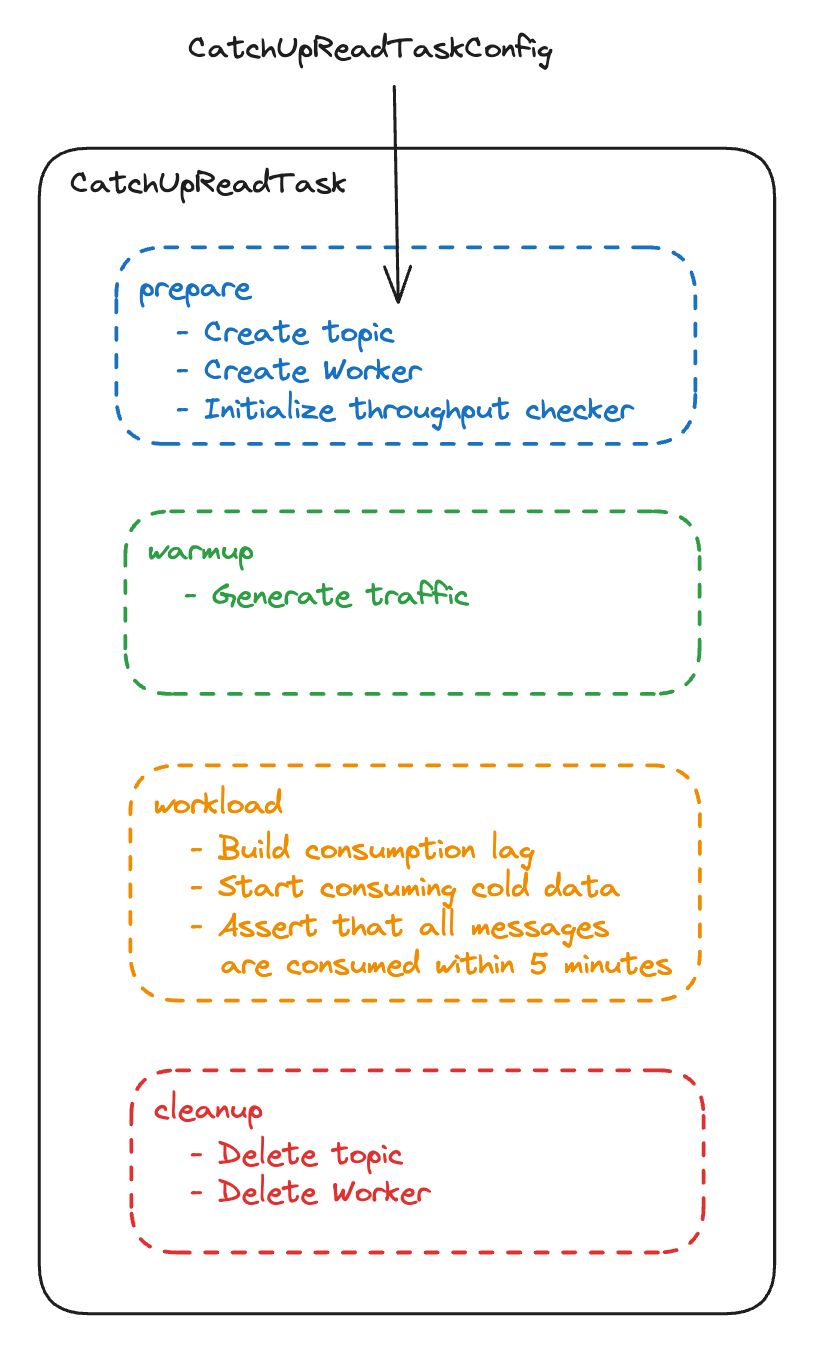 CatchUpReadTaskConfig
CatchUpReadTask
prepare
- Create topic
- Create Worker
- Initialize throughput checker
warmup
- Generate traffic
workload
- Build consumption lag
- Start consuming cold data
- Assert that all messages
are consumed within 5 minutes
cleanup
- Delete topic
- Delete Worker